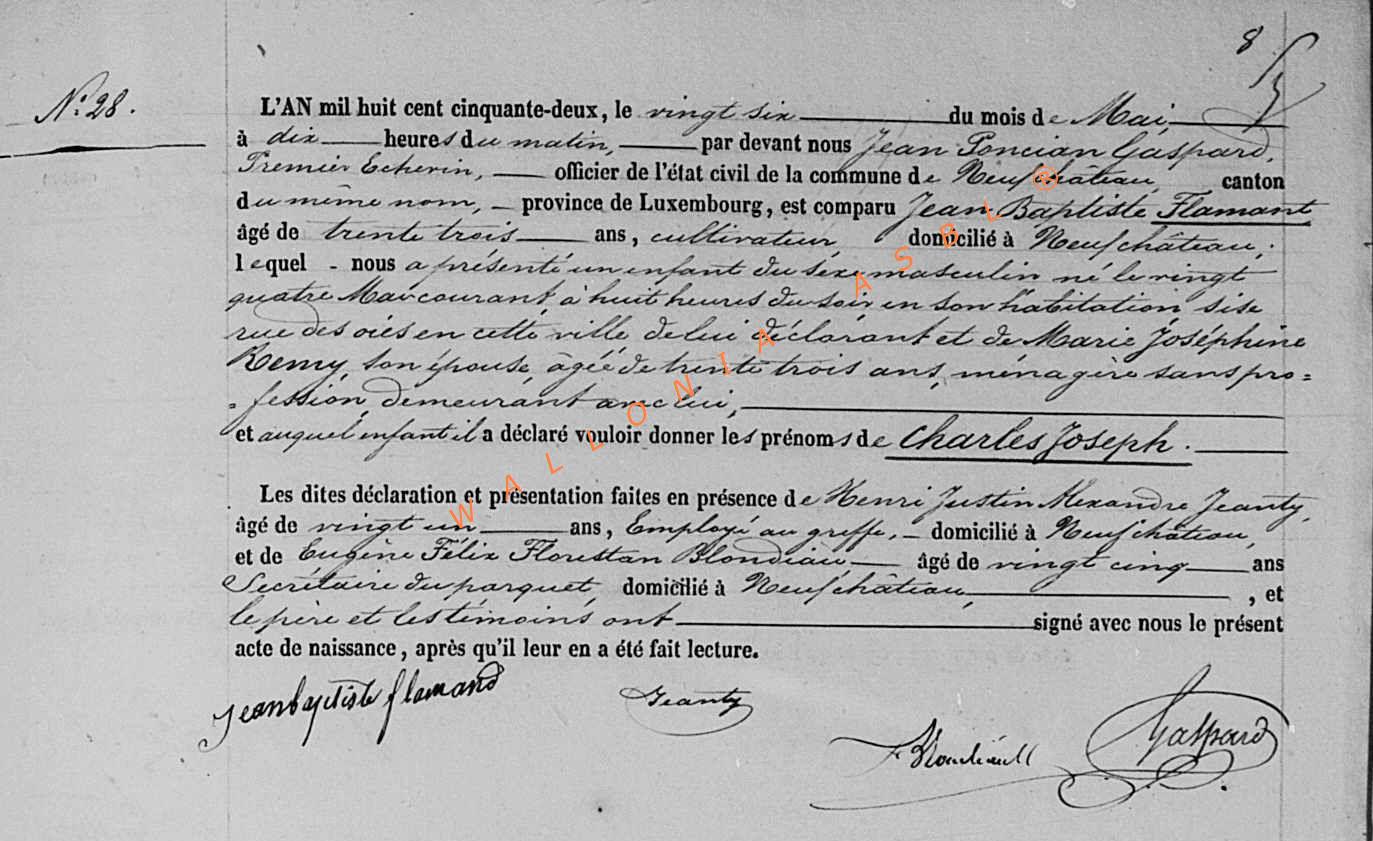 8
N° 28.
L'AN mil huit cent cinquante-deux, le vingt six du mois de Mai,
à dix heures du matin, par devant nous Jean Poncian Gaspard,
Premier Echevin, officier de l'état civil de la commune de Neufchâteau, canton
du même nom, province de Luxembourg, est comparu Jean Baptiste Flamant
âgé de trente trois ans, cultivateur domicilié à Neufchâteau,
lequel - nous a présenté un enfant du sexe masculin né le vingt
quatre Mai courant, à huit heures du soir, en son habitation sise
rue des oies en cette ville de lui déclarant et de Marie Joséphine
Remy, son épouse, âgée de trente trois ans, ménagère sans pro=
=fession, demeurant avec lui,
et auquel enfant il a déclaré vouloir donner les prénoms de Charles Joseph.
Les dites déclaration et présentation faites en présence de Henri Justin Alexandre Jeanty,
âgé de vingt un ans, Employé au greffe, domicilié à Neufchâteau,
et de Eugène Félix Florestan Blondiau âgé de vingt cinq ans
Secrétaire du parquet, domicilié à Neufchâteau, , et
le père et les témoins ont signé avec nous le présent
acte de naissance, après qu'il leur en a été fait lecture.
jeanbaptiste flamand
Jeanty
Gaspard
WALLONIA ASBL ®